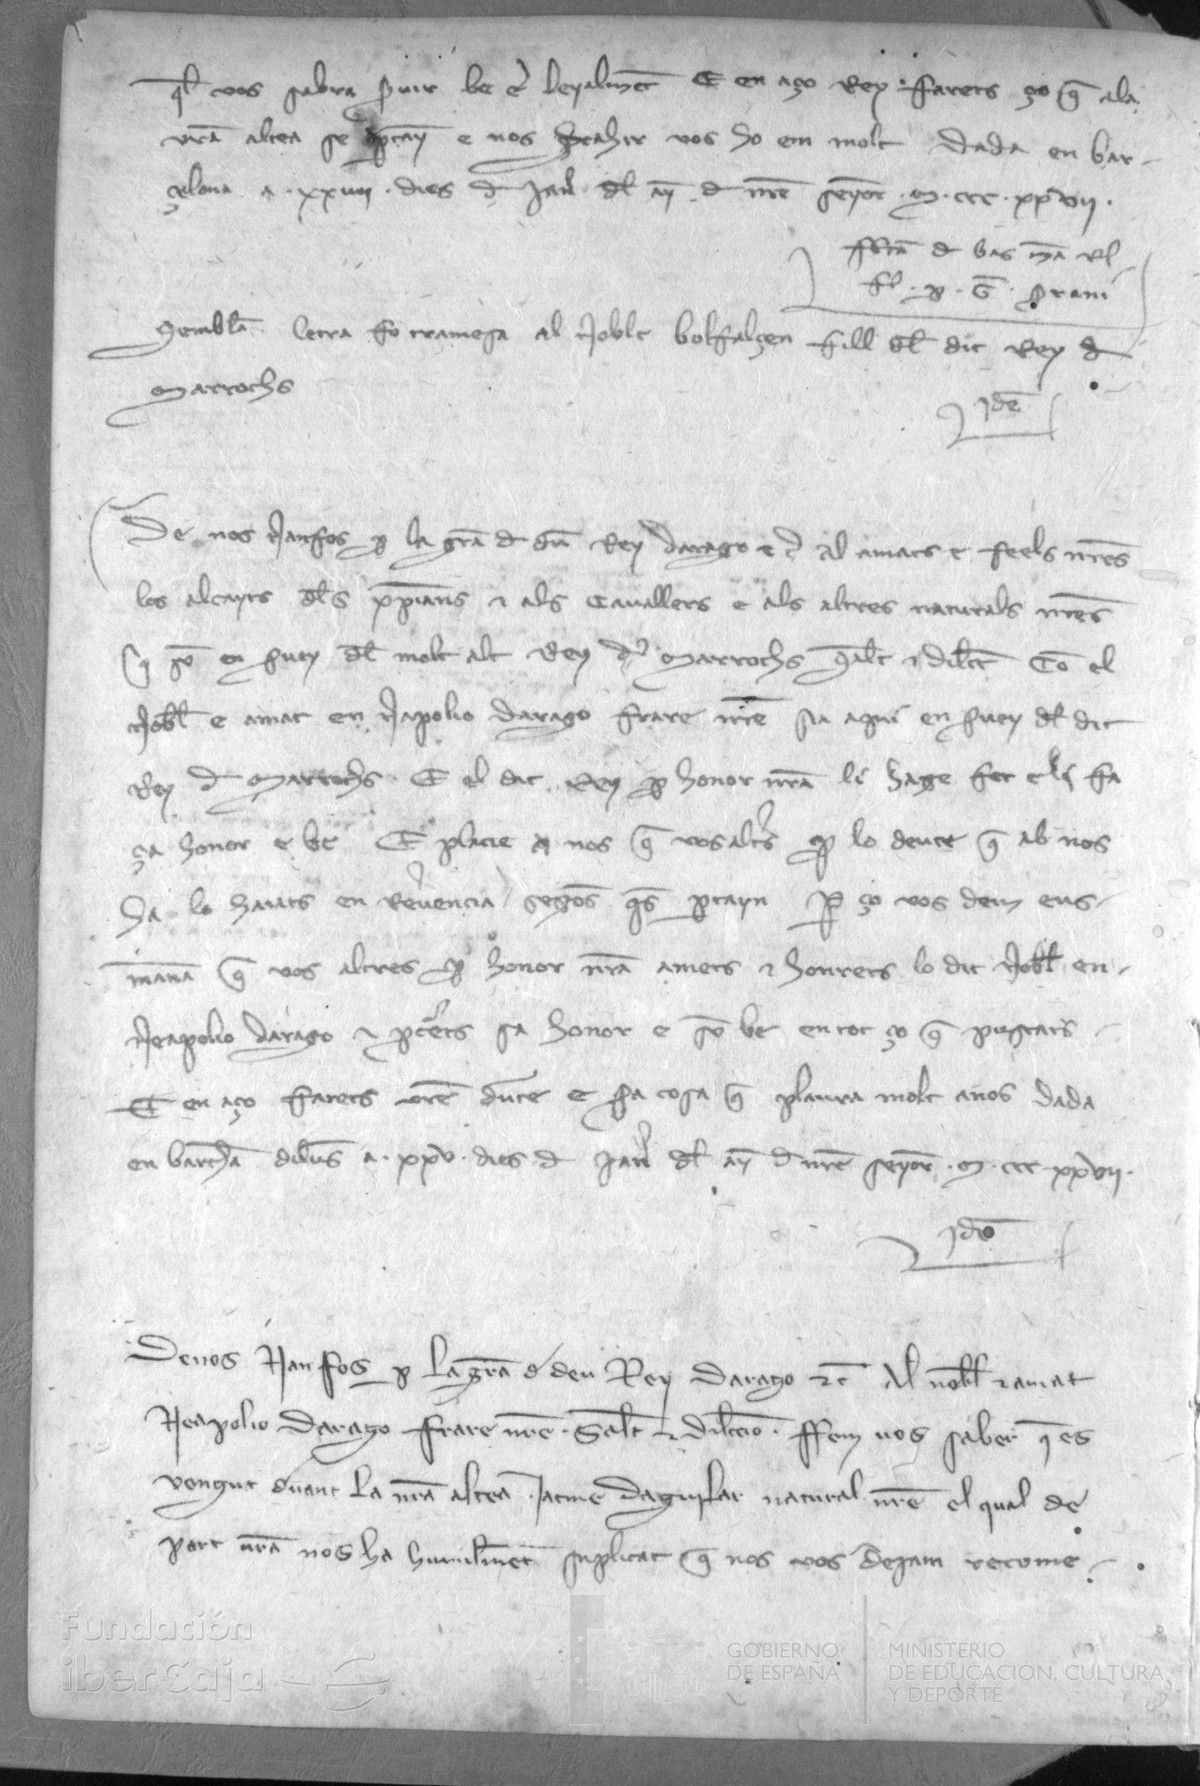 ql̄ vos sabra s̄uir be e leyalmēt E en aço Rey farets ço q̄ ala
vr̄a altea se p̄tayn e nos grahir vos ho em molt Dada en bar-
çelona a · xxvii · dies d Jan̄ dl̄ ay d nr̄e seyor · M · ccc · xxvii ·
ffc̄a d bas mā Rl
fl · p · G · 
Semblā letra fo tramesa al Noble bolfalçen fill dl̄ dit Rey d
Marrochs
Jdē
De nos Nanfos p la gr̄a d dū Rey darago e c̄ Al amats e feels nr̄es
los alcayts dl̄s xp̄ians τ als Cavallers e als altres naturals nr̄es
q̄ sō en s̄uey dl̄ molt alt Rey d Marrochs salt̄ τ dilc̄c̄ Cō el
Nobl̄ e amat en Napolio Darago frare nr̄e sia aqui en s̄uey dl̄ dit
Rey d Marrochs · E el dit Rey p honor nr̄a li hage fet e li fa
ça honor e be E placie a nos q̄ vos altr̄s p lo deute q̄ ab nos
ha lo haiats en Reu̇encia segōs q̄s p̄tayn P ço vos dem eus-
manā q̄ vos altres p honor nr̄a amets τ honrets lo dit Nobl̄ en-
Neapolio darago τ p̄c̄ets sa honor e sō be en tot ço q̄ puscats -
E en aço farets vr̄e dūte e s̄a cosa q̄ plaura molt a nos Dada
en barc̄hā dilūs a · xxv · dies d Jan̄ dl̄ ay d nr̄e seyor · M · ccc xxvii ·
Jdē
De nos Nanfos p la gr̄a d deu Rey Darago τc̄ Al nobl̄ τ amat
Neapolio Darago frare nr̄e · Salt̄ τ dilc̄cio · ffem vos saber q̄ es
vengut dūant la nr̄a altea Jacme Daguilar natural nr̄e el qual de
part vr̄a nos ha humilmēt suplicat q̄ nos vos dejam recome -
Fundación
ibercaja
GOBIERNO
DE ESPAÑA
MINISTERIO
DE EDUCACIÓN, CULTURA
Y DEPORTE